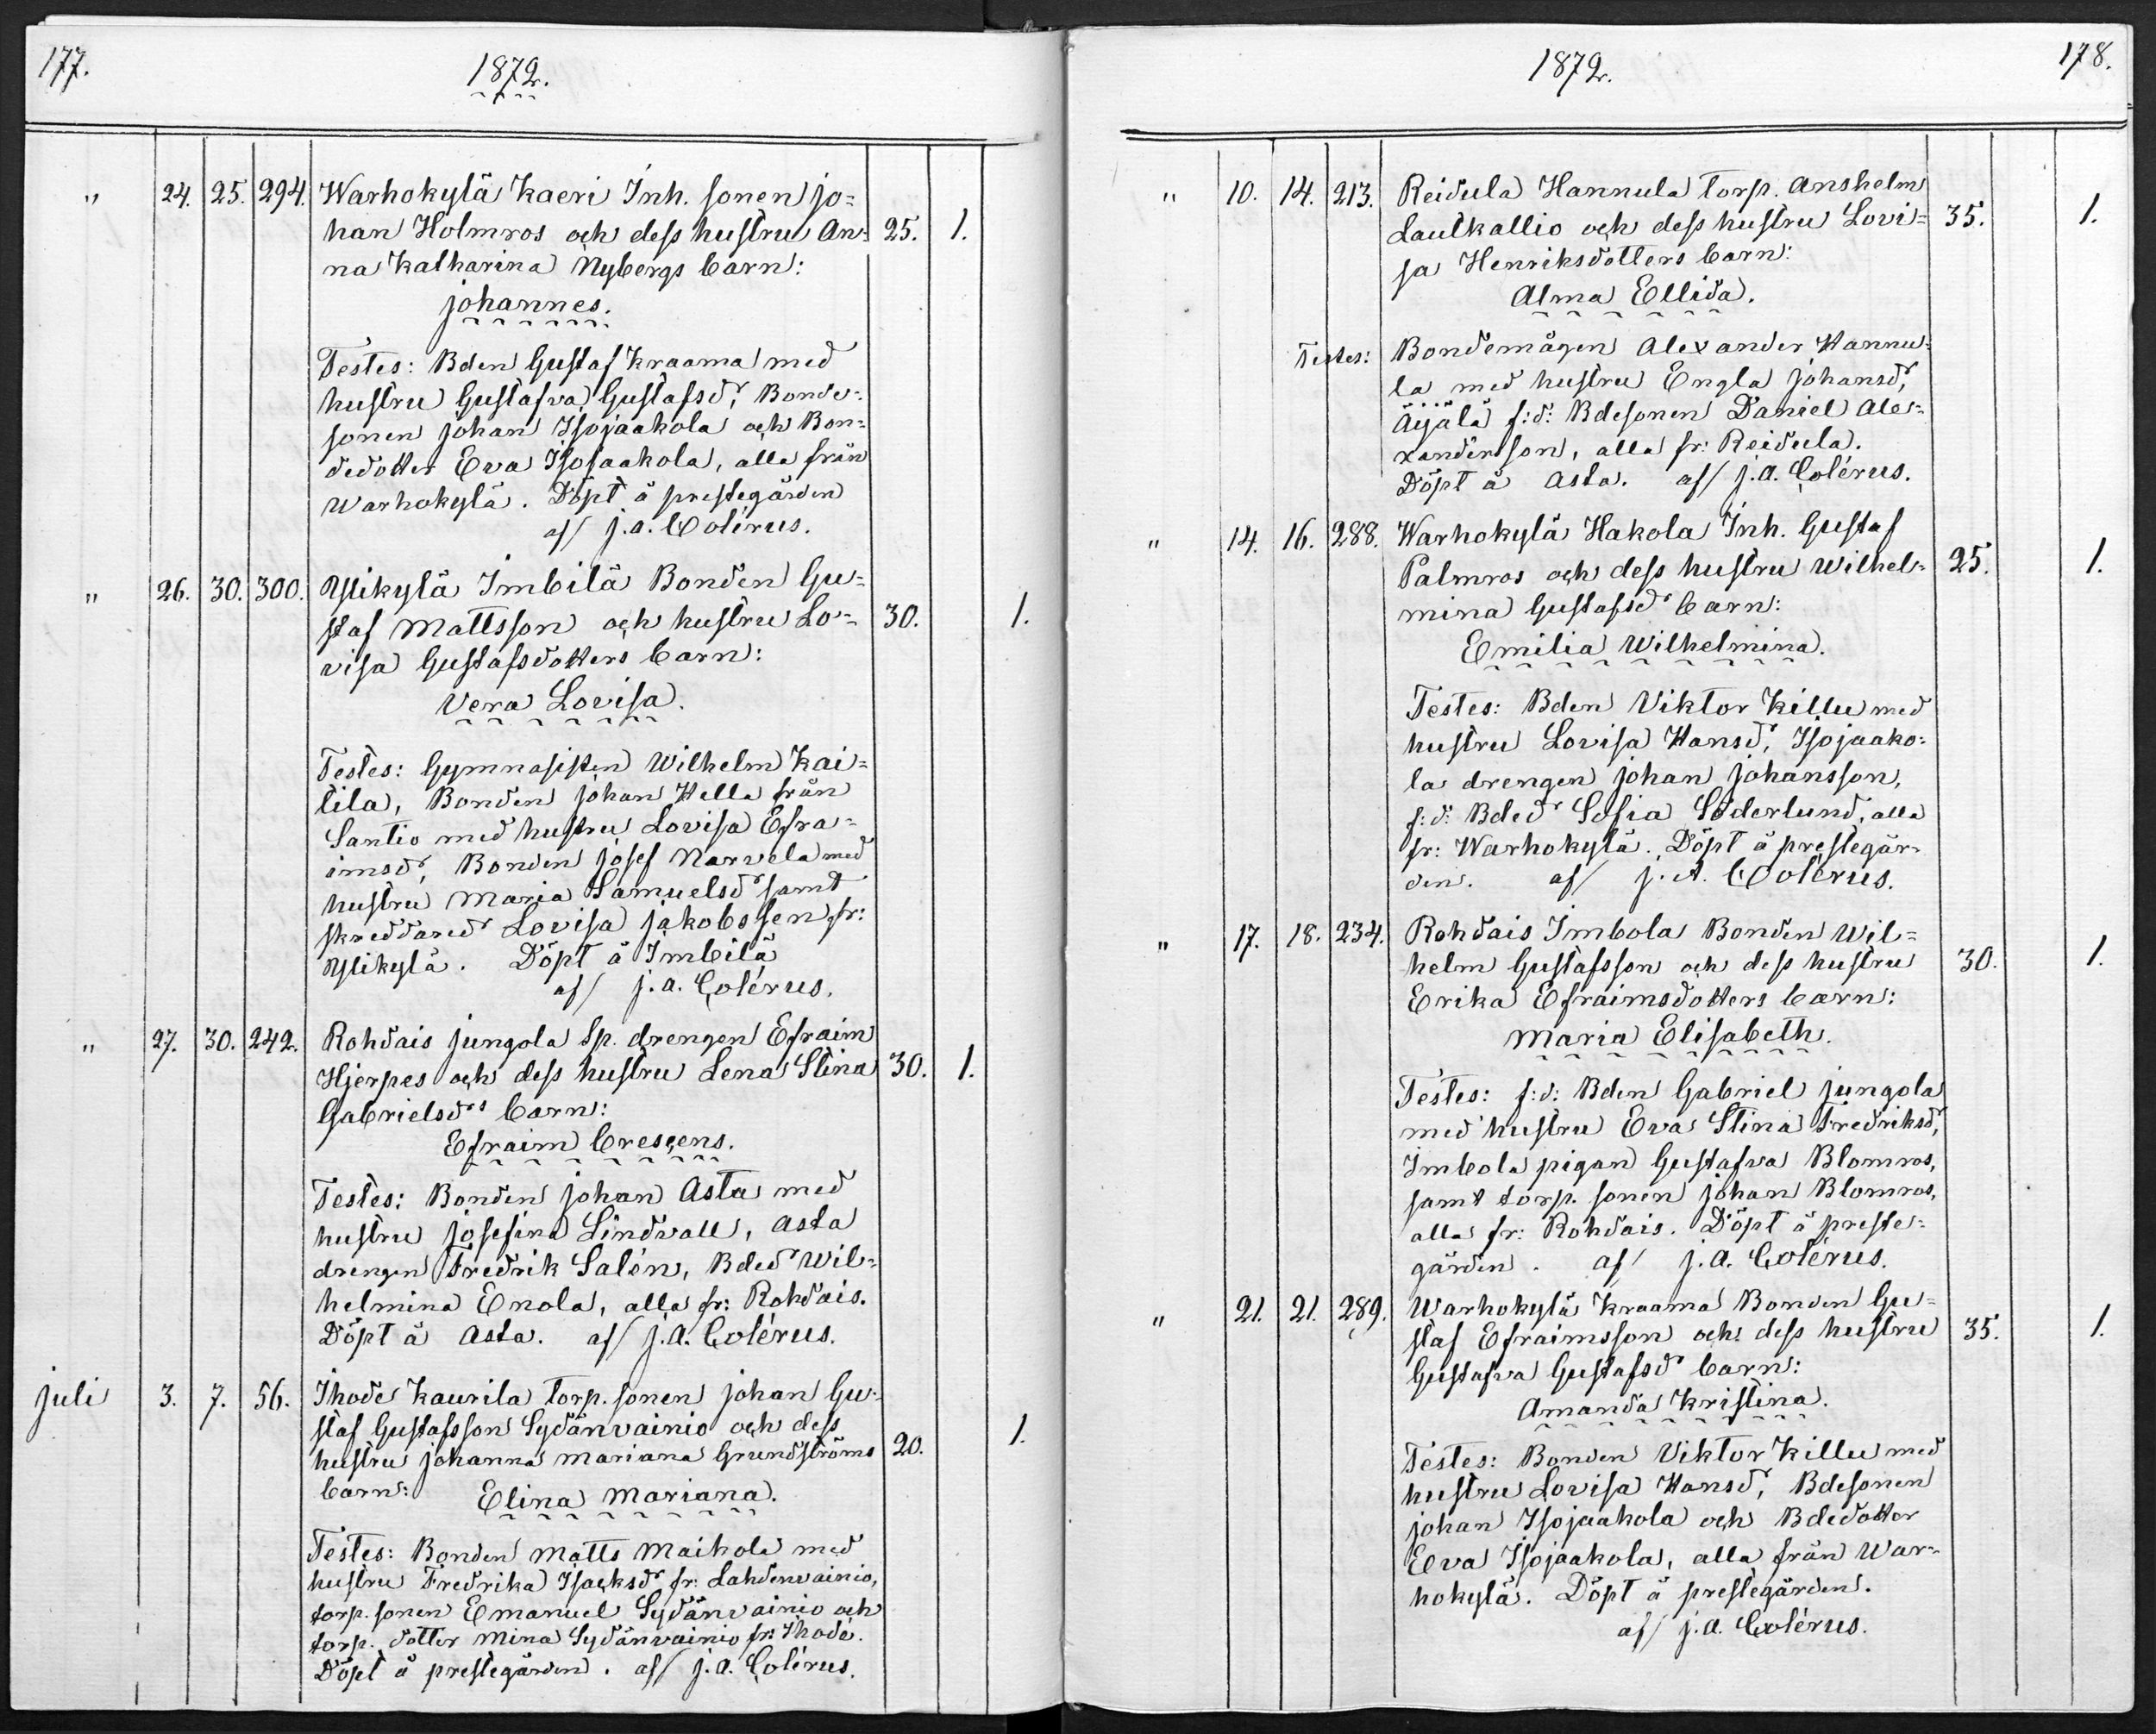 177.
1872.
" 24. 25. 294. Warhokylä Kaeri Inh. sonen Jo=
han Holmros och dess hustru An= 25. 1.
na Katharina Nybergs barn:
Johannes.
Testes: Bden Gustaf Kraama med
hustru Gustafva Gustafsdr, Bonde=
sonen Johan Isojaakola och Bon=
dedotter Eva Isojaakola, alla från
Warhokylä. Döpt å prestegården
af J. A. Colérus.
" 26. 30. 300. Ylikylä Imbilä Bonden Gu=
staf Mattsson och hustru Lo= 30. 1.
visa Gustafsdotters barn:
Vera Lovisa.
Testes: Gymnasisten Wilhelm Kai=
lila, Bonden Johan Hella från
Santio med hustru Lovisa Efra=
imsdr, Bonden Josef Narvela med
hustru Maria Samuelsdr samt
skreddaredr Lovisa Jakobssen fr:
Ylikylä. Döpt å Imbilä
af J. A. Colérus.
" 27. 30. 242. Rohdais Jungola Sp. drengen Efraim
Hjerpes och dess hustru Lena Stina 30. 1.
Gabrielsdrs barn:
Efraim Crescens.
Testes: Bonden Johan Asta med
hustru Josefina Lindvall, Asta
drengen Fredrik Salén, Bdedr Wil=
helmina Enola, alla fr: Rohdais.
Döpt å Asta. af J. A. Colérus.
Juli 3. 7. 56. Ihode Kaurila Torp. sonen Johan Gu=
staf Gustafsson Sydänvainio och dess 1.
hustru Johanna Mariana Grundströms 20.
barn: Elina Mariana.
Testes: Bonden Matts Maihola med
hustru Fredrika Isacksdr fr: Lahdenvainio,
torp. sonen Emanuel Sydänvainio och
torp. dotter Mina Sydänvainio fr: Ihode.
Döpt å prestegården. af J. A. Colérus.
1872.
178.
" 10. 14. 213. Reidula Hannula Torp. Anshelm
Laulkallio och dess hustru Lovi= 35. 1.
sa Henriksdotters barn:
Alma Ellida.
Testes: Bondemågen Alexander Hannu=
la med hustru Engla Johansdr,
Äijälä f:d: Bdesonen Daniel Ale=
xandersson, alla fr: Reidula.
Döpt å Asta. af J. A. Colérus.
" 14. 16. 288. Warhokylä Hakola Inh. Gustaf
Palmros och dess hustru Wilhel= 25. 1.
mina Gustafsdr barn:
Emilia Wilhelmina.
Testes: Bden Viktor Killu med
hustru Lovisa Hansdr, Isojaako=
la drengen Johan Johansson,
f:d: Bdedr Sofia Söderlund, alla
fr: Warhokylä. Döpt å prestegår=
den. af J. A. Colérus.
" 17. 18. 234. Rohdais Imbola Bonden Wil=
helm Gustafsson och dess hustru 30. 1.
Erika Efraimsdotters barn:
Maria Elisabeth.
Testes: f:d: Bden Gabriel Jungola
med hustru Eva Stina Fredriksdr,
Imbola pigan Gustafva Blomros,
samt torp. sonen Johan Blomros,
alla fr: Rohdais. Döpt å preste=
gården. af J. A. Colérus.
" 21. 21. 289. Warhokylä Kraama Bonden Gu=
staf Efraimsson och dess hustru 35. 1.
Gustafva Gustafsdr barn:
Amanda Kristina.
Testes: Bonden Viktor Killu med
hustru Lovisa Hansdr, Bdesonen
Johan Isojaakola och Bdedotter
Eva Isojaakola, alla från War=
hokylä. Döpt å prestegården.
af J. A. Colérus.